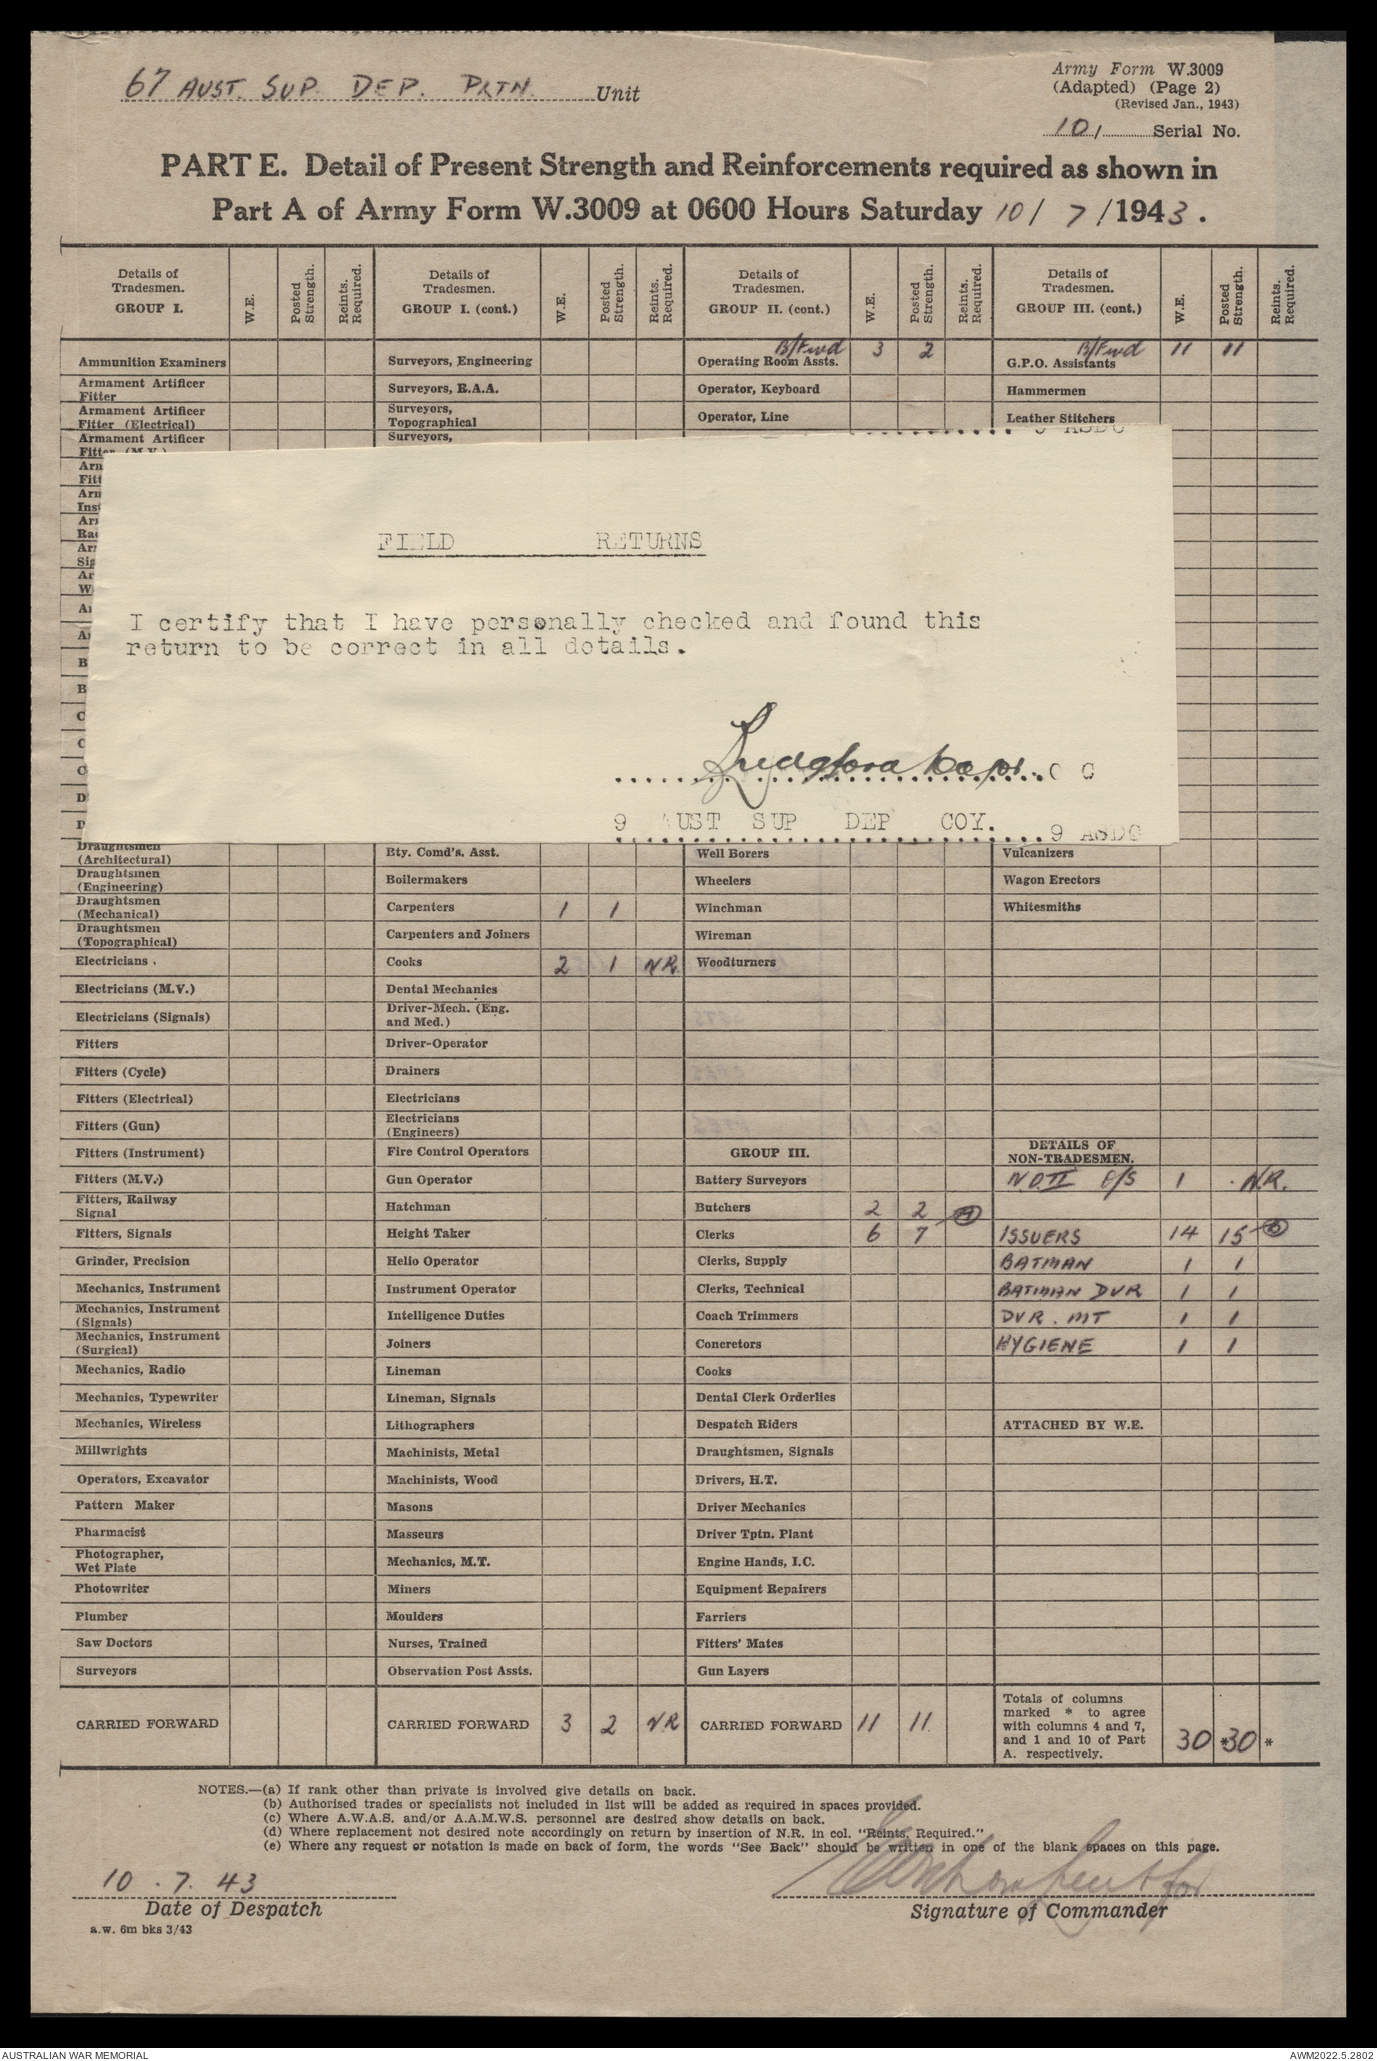 67 AUST. SUP. DEP. PLTN. Unit
Army Form W.3009
(Adapted) (Page 2)
(Revised Jan., 1943)
101 Serial No.
PART E. Detail of Present Strength and Reinforcements required as shown in
Part A of Army Form W.3009 at 0600 Hours Saturday 10/ 7 /1943.
Details of Tradesmen. GROUP I. W.E. Posted Strength. Reints. Required. Details of Tradesmen. GROUP I. (cont.) W.E. Posted Strength. Reints. Required. Details of Tradesmen. GROUP II. (cont.) W.E. Posted Strength. Reints. Required. Details of Tradesmen. GROUP III. (cont.) W.E. Posted Strength. Reints. Required.
B/Fwd 3 2 B/Fwd 11 11
Ammunition Examiners Surveyors, Engineering Operating Room Assts. G.P.O. Assistants
Armament Artificer Fitter Surveyors, R.A.A. Operator, Keyboard Hammermen
Armament Artificer Fitter (Electrical) Surveyors, Topographical Operator, Line Leather Stitchers
Armament Artificer Fitter (M.V.) Surveyors,
FIELD RETURNS
I certify that I have personally checked and found this
return to be correct in all details.
Capt. O C
9 AUST SUP DEP COY.
9 ASDC
Draughtsmen (Architectural) Bty. Comd's. Asst. Well Borers Vulcanizers
Draughtsmen (Engineering) Boilermakers Wheelers Wagon Erectors
Draughtsmen (Mechanical) Carpenters 1 1 Winchman Whitesmiths
Draughtsmen (Topographical) Carpenters and Joiners Wireman
Electricians Cooks 2 1 N.R. Woodturners
Electricians (M.V.) Dental Mechanics
Electricians (Signals) Driver-Mech. (Eng. and Med.)
Fitters Driver-Operator
Fitters (Cycle) Drainers
Fitters (Electrical) Electricians
Fitters (Gun) Electricians (Engineers)
Fitters (Instrument) Fire Control Operators GROUP III. DETAILS OF NON-TRADESMEN.
Fitters (M.V.) Gun Operator Battery Surveyors 1 N.R.
Fitters, Railway Signal Hatchman Butchers 2 2
Fitters, Signals Height Taker Clerks 6 7 ISSUERS 14 15
Grinder, Precision Helio Operator Clerks, Supply BATMAN 1 1
Mechanics, Instrument Instrument Operator Clerks, Technical BATMAN DVR 1 1
Mechanics, Instrument (Signals) Intelligence Duties Coach Trimmers DVR. MT 1 1
Mechanics, Instrument (Surgical) Joiners Concretors HYGIENE 1 1
Mechanics, Radio Lineman Cooks
Mechanics, Typewriter Lineman, Signals Dental Clerk Orderlies
Mechanics, Wireless Lithographers Despatch Riders ATTACHED BY W.E.
Millwrights Machinists, Metal Draughtsmen, Signals
Operators, Excavator Machinists, Wood Drivers, H.T.
Pattern Maker Masons Driver Mechanics
Pharmacist Masseurs Driver Tptn. Plant
Photographer, Wet Plate Mechanics, M.T. Engine Hands, I.C.
Photowriter Miners Equipment Repairers
Plumber Moulders Farriers
Saw Doctors Nurses, Trained Fitters' Mates
Surveyors Observation Post Assts. Gun Layers
CARRIED FORWARD CARRIED FORWARD 3 2 NR CARRIED FORWARD 11 11 Totals of columns marked * to agree with columns 4 and 7, and 1 and 10 of Part A. respectively. 30 *30 *
NOTES.—(a) If rank other than private is involved give details on back.
(b) Authorised trades or specialists not included in list will be added as required in spaces provided.
(c) Where A.W.A.S. and/or A.A.M.W.S. personnel are desired show details on back.
(d) Where replacement not desired note accordingly on return by insertion of N.R. in col. "Reints. Required."
(e) Where any request or notation is made on back of form, the words "See Back" should be written in one of the blank spaces on this page.
10 . 7. 43
Date of Despatch
Signature of Commander
a.w. 6m bks 3/43
AUSTRALIAN WAR MEMORIAL
AWM2022.5.2802